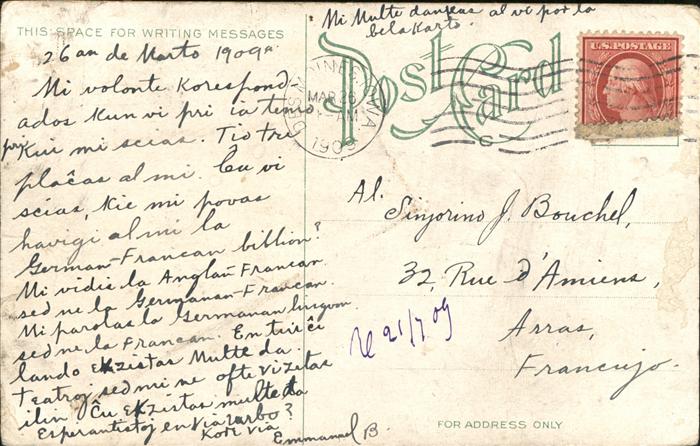 Mi Multe dankas al vi por la
bela karto.
THIS SPACE FOR WRITING MESSAGES
Post Card
U.S. POSTAGE
26an de Marto 1909a
Mi volonte Korespond-
ados kun vi pri ia temo
pri kiu mi scias. Tio tre
plaĉas al mi. Ĉu vi
scias, kie mi povas
havigi al mi la
German-Francan
Mi vidis la Anglan-Francan
sed ne la Germanan-Francan.
Mi parolas la Germanan lingvon
sed ne la Francan. En tiu ĉi
lando ekzistas Multe da
teatroj, sed mi ne ofte vizitas
ilin Ĉu ekzistas multe da
Esperantistoj en via urbo?
Kore via
Emmanuel B.
MAR 26
AM
1909
IOWA
Al.
Sinjorino J. Bouchel,
32, Rue d'Amiens,
Arras,
Francujo.
21/7 09
FOR ADDRESS ONLY